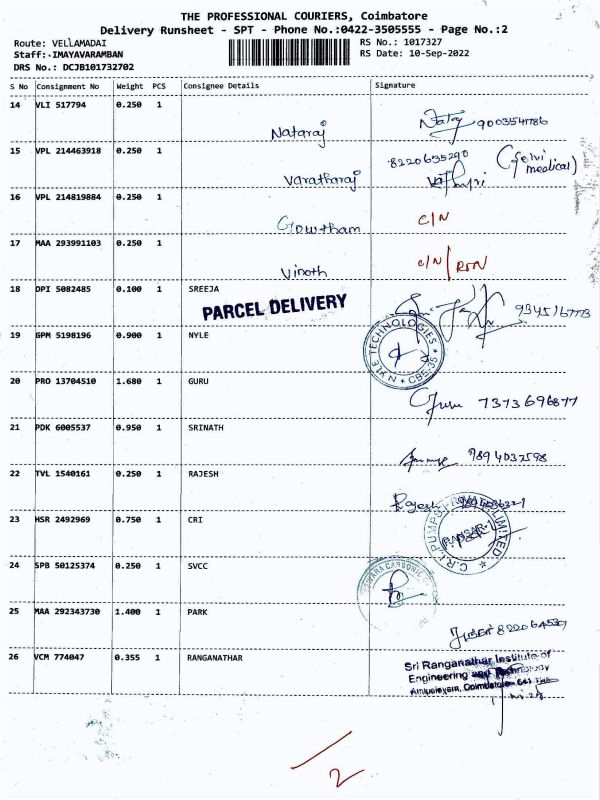 THE PROFESSIONAL COURIERS, Coimbatore
Delivery Runsheet - SPT - Phone No.:0422-3505555 - Page No.:2
Route: VELLAMADAI RS No.: 1017327
Staff:-IMAYAVARAMBAN RS Date: 10-Sep-2022
DRS No.: DCJB101732702
S No Consignment No Weight PCS Consignee Details Signature
14 VLI 517794 0.250 1
Nataraj 9003541786
15 VPL 214463918 0.250 1
8220635290
Varatharaj medical)
16 VPL 214819884 0.250 1
Gowtham C/N
17 MAA 293991103 0.250 1
Vinoth C/N/RTN
18 DPI 5082485 0.100 1 SREEJA
PARCEL DELIVERY
19 GPM 5198196 0.900 1 NYLE
NYLE TECHNOLOGIES * CBE-35 *
20 PRO 13704510 1.680 1 GURU
Guru 7373696877
21 PDK 6005537 0.950 1 SRINATH
9894037598
22 TVL 1540161 0.250 1 RAJESH
Rajesh
23 HSR 2492969 0.750 1 CRI
C.R.I. PUMPS PRIVATE LIMITED.
24 SPB 50125374 0.250 1 SVCC
CARBONIC
25 MAA 292343730 1.400 1 PARK
26 VCM 774047 0.355 1 RANGANATHAR
Sri Ranganathar Institute of
Engineering and Technology
Coimbatore- 641
2